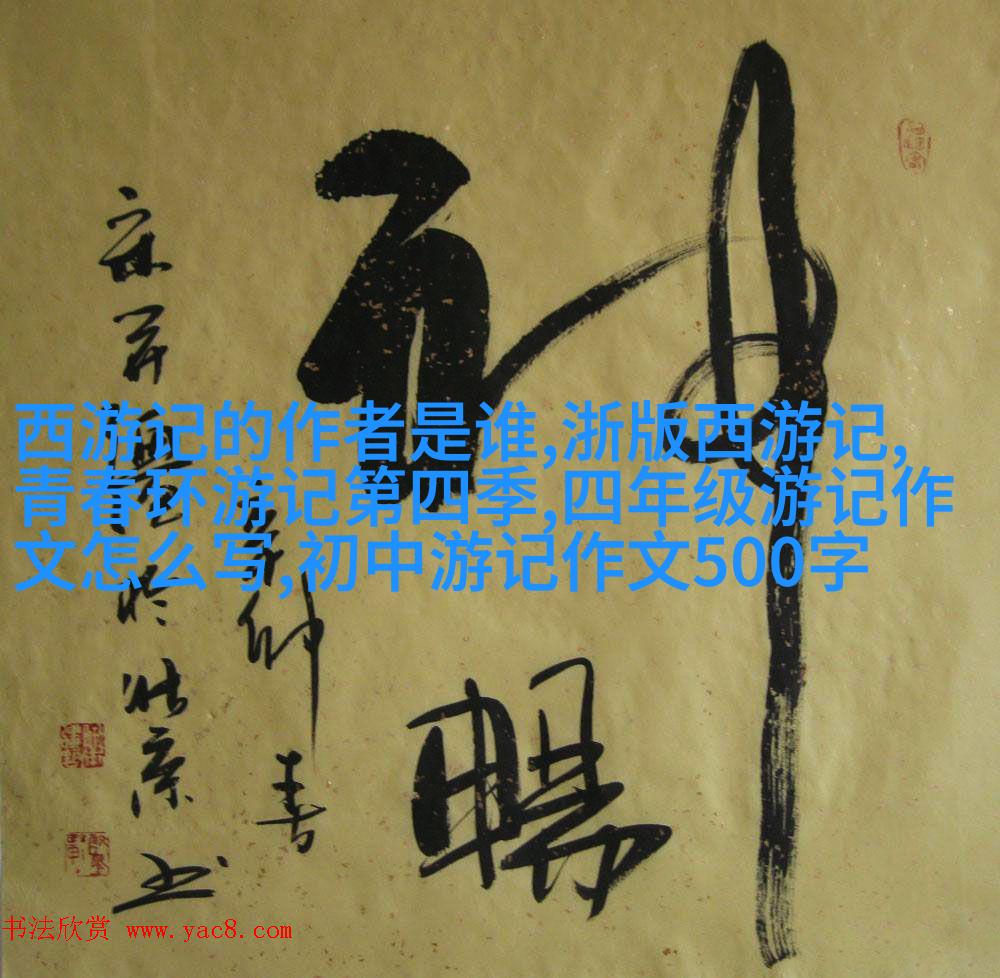 神暢
春
於北京书
西游记的作者是谁,浙版西游记,
青春环游记第四季,四年级游记作
文怎么写,初中游记作文500字
书法欣赏 www.yac8.com